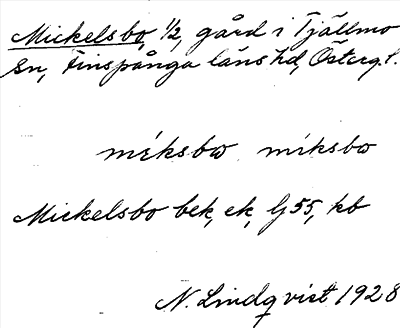 Mickelsbo, 1/2, gård i Tjällmo
sn, Finspånga läns hd, Österg.l.
méksbω míksbω
Mickelsbo bek, ek, lj 55, kb
N. Lindqvist 1928